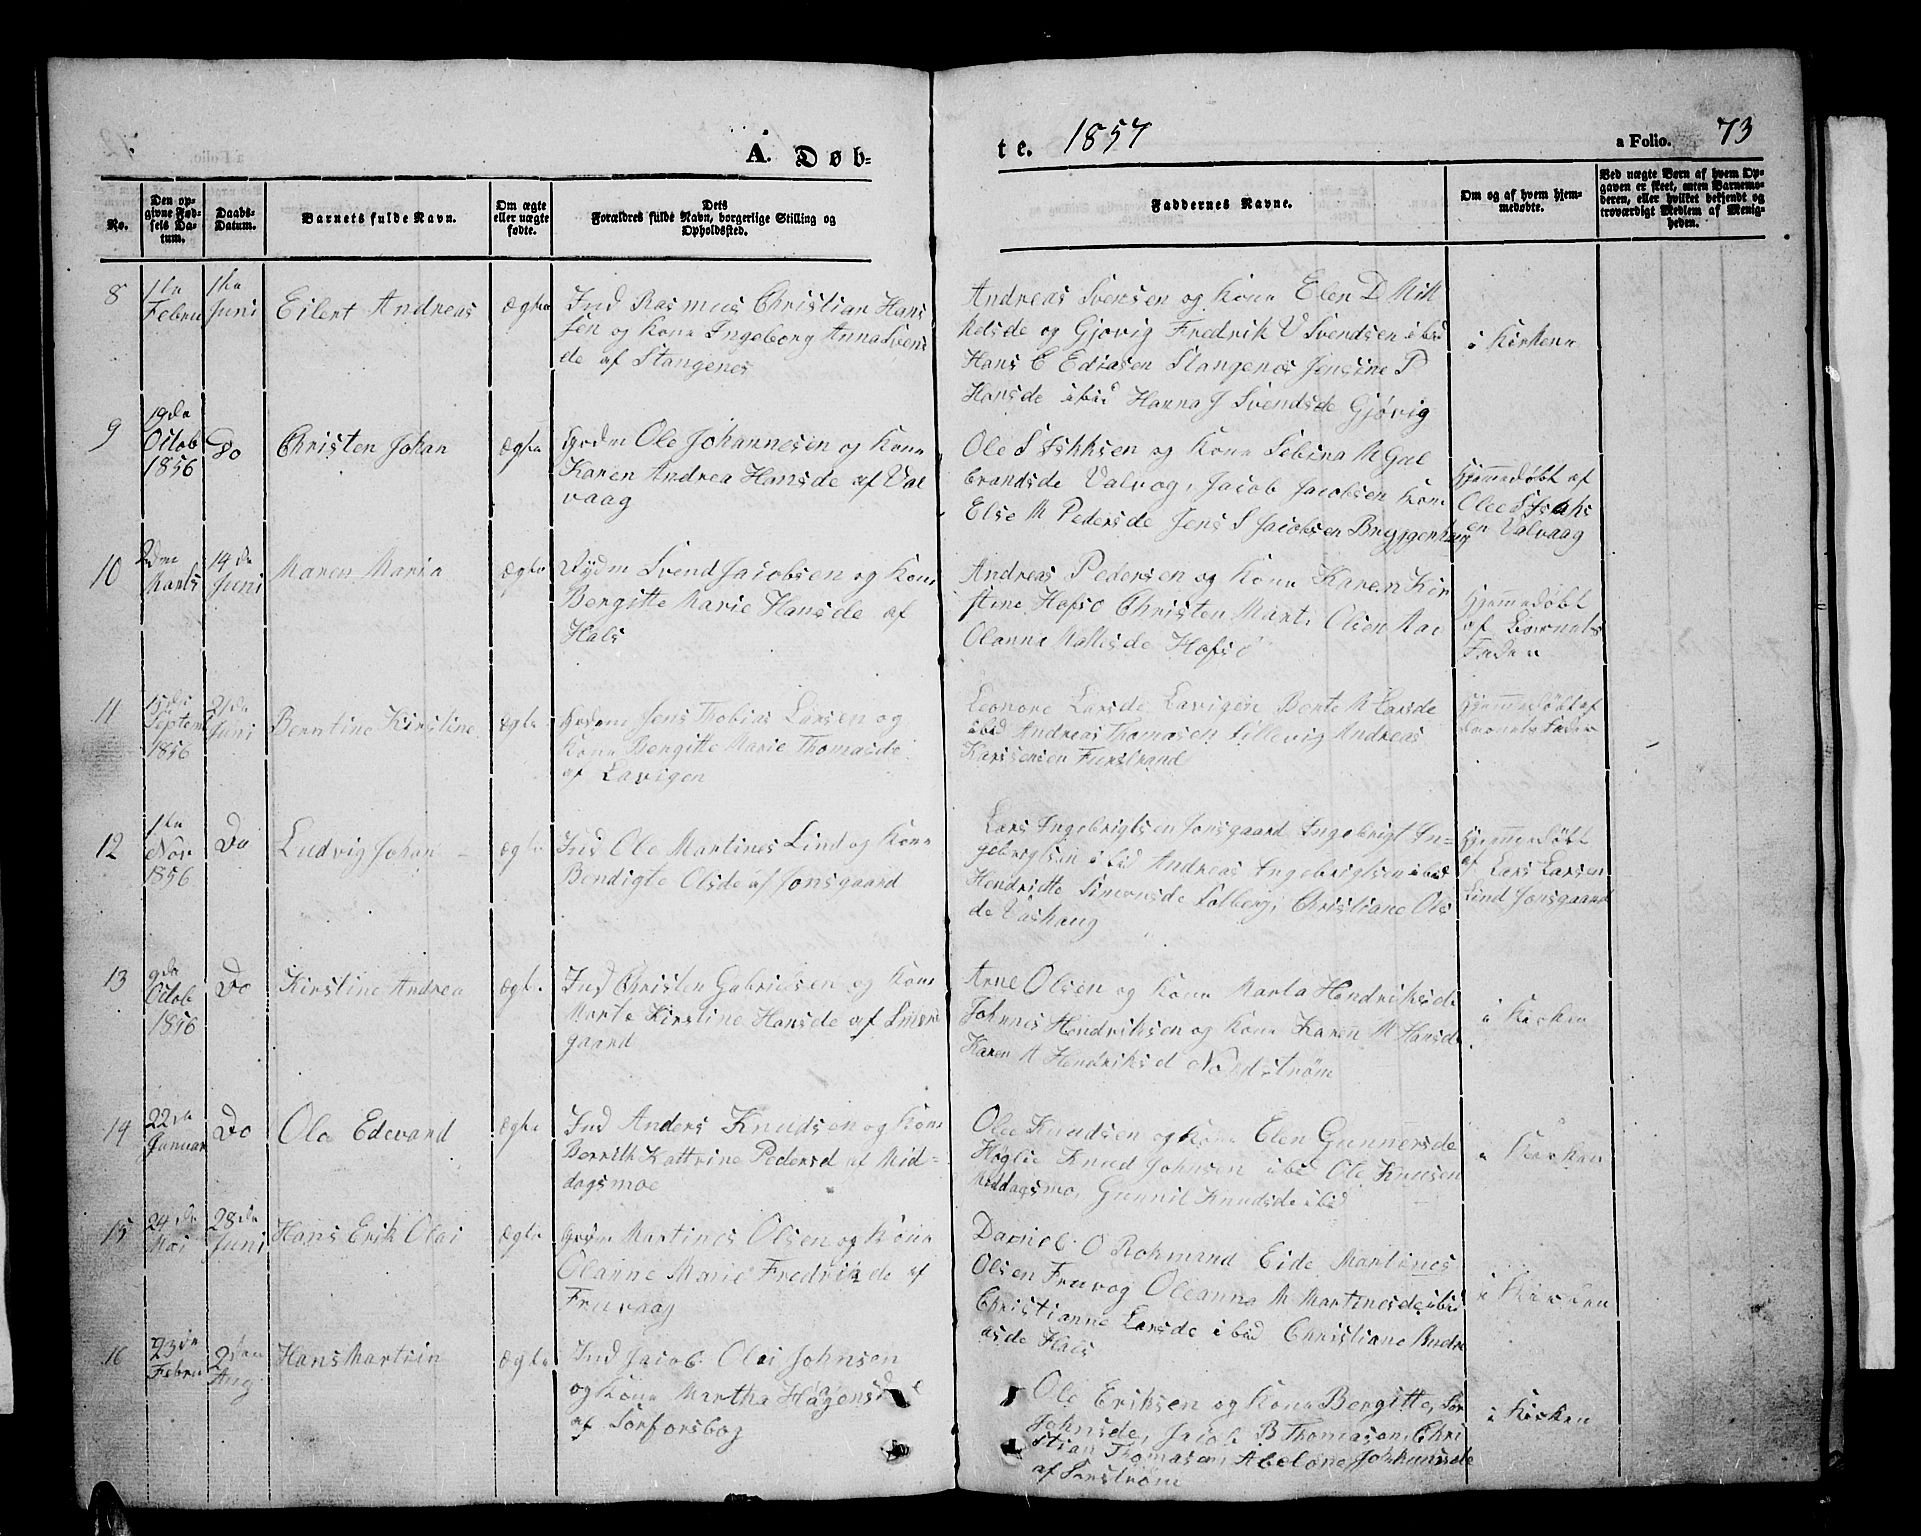 A. Døb-
te. 1857
a Folio. 73
No.
Den op-
givne Fød-
sels Da-
tum.
Daabs-
Datum.
Barnets fulde Navn.
Om ægte
eller uægte
fødte.
Dets
Forældres fulde Navn, borgerlige Stilling og
Opholdssted.
Faddernes Navne.
Om og af hvem hjem-
medøbte.
Ved uægte Børn af hvem Op-
gaven er skeet, enten Barnemo-
deren, eller hvilket bekjendt og
troværdigt Medlem af Menig-
heden.
8
1ste
Febru
1ste
Juni
Eilert Andreas
Ægte
Ind Rasmus Christian Hans
sen og Kone Ingeborg Anna Svens
de af Stangenes
Andreas Svensen og Kone Elen D Mik
kelsde og Gjøvig Fredrik V Svendsen ibid
Hans E Ediasen Slangenes Jensine P
Hansde ibid Hanna J Svendsde Gjøvig
i Kirken
9
19de
Octob
1856
Do
Christen Johan
Ægte
Ole Johannesen og Kone
Karen Andrea Hansde af Val
vaag
Ole S Isakksen og Kone Sebina M Gul
brandsde Valvog, Jacob Jacobsen Kone
Else M Pedersde Jens S Jacobsen Bryggenhaug
Hjemmedøbt af
Olee S Isaks
en Valvaag
10
2den
Marts
14de
Juni
Maren Maria
Ægte
Svend Jacobsen og Kone
Bergitte Marie Hansde af
Hals
Andreas Pedersen og Kone Karen Kir
stine Hofsø Christen Mart. Olsen
Olanna Mattisde Hofsø
Hjemmedøbt
af Barnets
Fader
11
15de
Septem
1856
21de
Juni
Berntine Kirstine
Ægte
Jens Tobias Larsen og
Kone Bergitte Marie Thomasde
af Lavigen
Leonore Larsde Lavigen Berte M Larsde
ibid Andreas Thomasen Lillevig Andreas
Karstensen Furstrand
Hjemmedøbt af
barnets Fader
12
1ste
Nov
1856
Do
Ludvig Johan
Ægte
Ind Ole Martines Lind og Kone
Bendigte Olsde af Jonsgaard
Lars Ingebrigtsen Jonsgaard Ingebrigt In-
gebrigtsen ibid Andreas Ingebrigtsen ibid
Hendritte Simonsde Solberg, Christiane Ols
de Vashaug
Hjemmedøbt
af
Lars Larsen
Lind Jonsgaard
13
9de
Octob
1856
Do
Kirstine Andrea
Ægte
Ind Christen Gabrielsen og Kone
Marte Kirstine Hansde af
gaard
Arne Olsen og Kone Marta Hendriksde
Johnnes Hendriksen og Kone Karen M Hansde
Karen A Hendriksd Nordstrøm
i Kirken
14
22de
Januar
Do
Ole Edevard
Ægte
Ind Anders Knudsen og Kone
Berrith Kattrine Pedersd af Mid-
dagsmoe
Olee Knudsen og Kone Elen Gunnersde
Høglie Knud Johnsen ibid Ole Knusen
Middagsmo, Gunnil Knudsde ibid
i Kirken
15
24de
Mai
28de
Juni
Hans Erik Olai
Ægte
Martines Olsen og Kone
Olanne Marie Fredrikde af
Fruvaag
Daniel O Rohmand Eide Martines
Olsen Fruvog Oleanna M Martinesde ibid
Christianne Larsde ibid Christiane Andre
asde Hals
i Kirken
16
23de
Febru
2den
Aug
Hans Martin
Ægte
Ind Jacob Olai Johnsen
og Kone Martha Hagensd
af Sørforsbog
Ole Eriksen og Kone Bergitte,
Johnsde, Jacob B Thomasen, Chri
stian Thomasen, Abelone Johannsde
af Sørstrøm
i Kirken